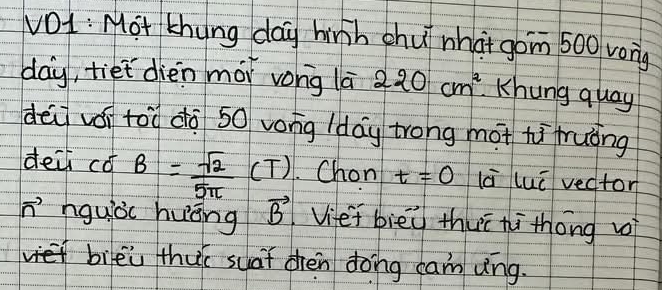 VD1: Một khung dây hình chữ nhật gồm 500 vòng
dây, tiết diện mỗi vòng là 220 cm². Khung quay
đều với tốc độ 50 vòng /dây trong một từ trường
đều có B = √2/5π (T). Chọn t = 0 là lúc vector
n⃗ ngược hướng B⃗. Viết biểu thức từ thông và
viết biểu thức suất điện động cảm ứng.